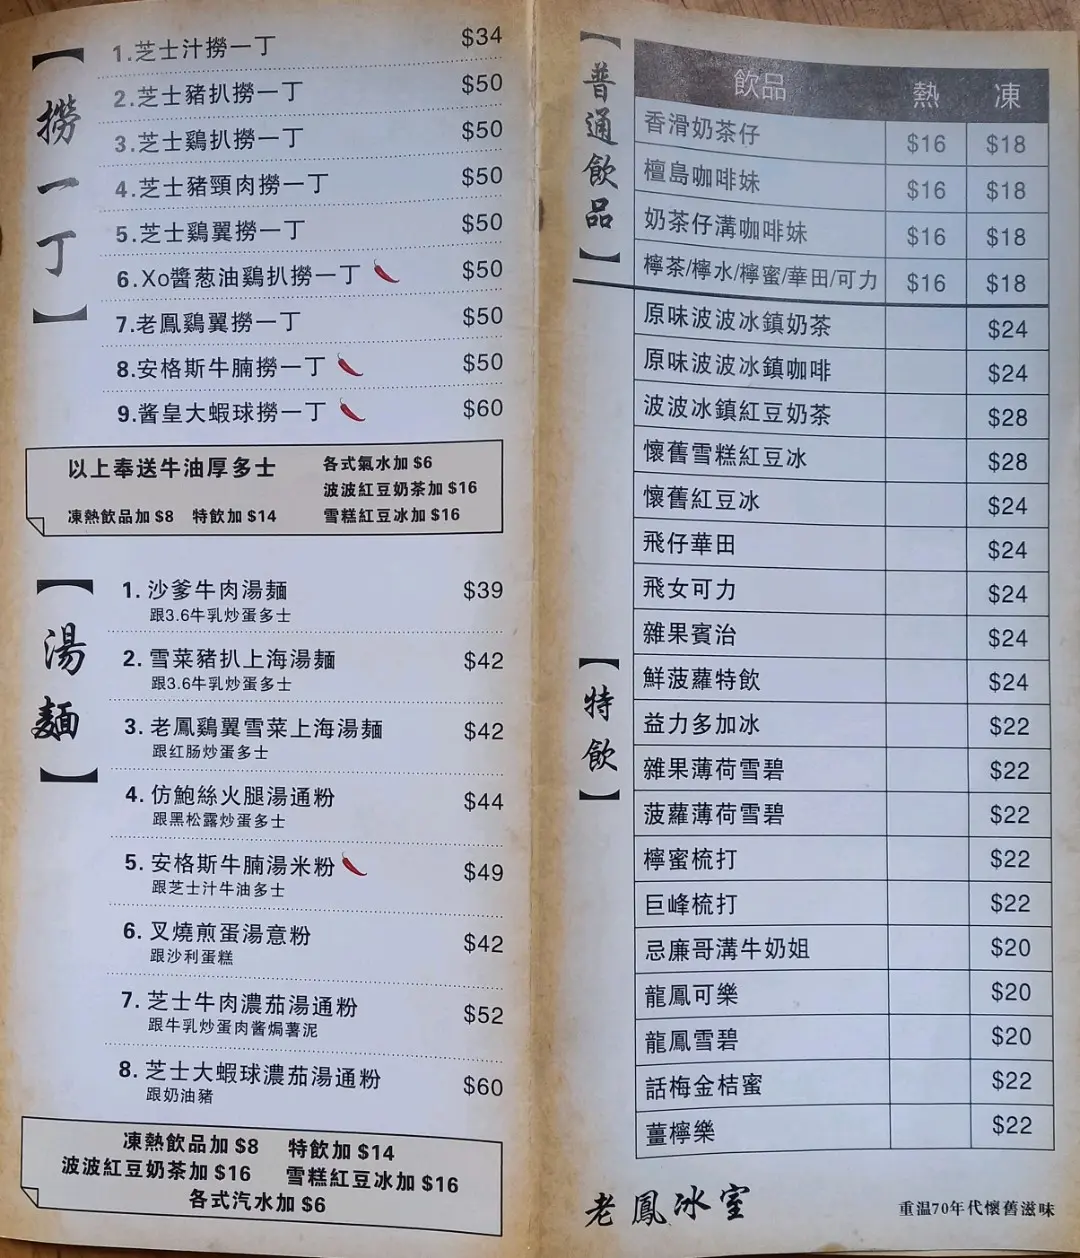 【撈一丁】
1.芝士汁撈一丁 $34
2.芝士豬扒撈一丁 $50
3.芝士鷄扒撈一丁 $50
4.芝士豬頸肉撈一丁 $50
5.芝士鷄翼撈一丁 $50
6.Xo醬葱油鷄扒撈一丁 $50
7.老鳳鷄翼撈一丁 $50
8.安格斯牛腩撈一丁 $50
9.酱皇大蝦球撈一丁 $60
以上奉送牛油厚多士
各式氣水加 $6
波波紅豆奶茶加 $16
凍熱飲品加 $8 特飲加 $14
雪糕紅豆冰加 $16
【湯麵】
1. 沙爹牛肉湯麵 $39
跟3.6牛乳炒蛋多士
2. 雪菜豬扒上海湯麵 $42
跟3.6牛乳炒蛋多士
3. 老鳳鷄翼雪菜上海湯麵 $42
跟红肠炒蛋多士
4. 仿鮑絲火腿湯通粉 $44
跟黑松露炒蛋多士
5. 安格斯牛腩湯米粉 $49
跟芝士汁牛油多士
6. 叉燒煎蛋湯意粉 $42
跟沙利蛋糕
7. 芝士牛肉濃茄湯通粉 $52
跟牛乳炒蛋肉酱焗薯泥
8. 芝士大蝦球濃茄湯通粉 $60
跟奶油豬
凍熱飲品加 $8 特飲加 $14
波波紅豆奶茶加 $16 雪糕紅豆冰加 $16
各式汽水加 $6
【普通飲品】
飲品 熱 凍
香滑奶茶仔 $16 $18
檀島咖啡妹 $16 $18
奶茶仔溝咖啡妹 $16 $18
檸茶/檸水/檸蜜/華田/可力 $16 $18
【特飲】
原味波波冰鎮奶茶 $24
原味波波冰鎮咖啡 $24
波波冰鎮紅豆奶茶 $28
懷舊雪糕紅豆冰 $28
懷舊紅豆冰 $24
飛仔華田 $24
飛女可力 $24
雜果賓治 $24
鮮菠蘿特飲 $24
益力多加冰 $22
雜果薄荷雪碧 $22
菠蘿薄荷雪碧 $22
檸蜜梳打 $22
巨峰梳打 $22
忌廉哥溝牛奶姐 $20
龍鳳可樂 $20
龍鳳雪碧 $20
話梅金桔蜜 $22
薑檸樂 $22
老鳳冰室
重温70年代懷舊滋味